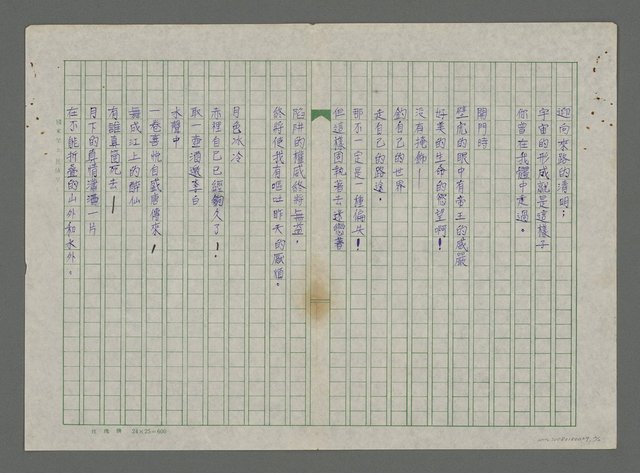 迎向來路的清明；
宇宙的形成就是這樣子
你當在我體中走過。
開門時
壁虎的眼中有帝王的威嚴
好美的生命的慾望啊！
沒有掩飾—
的自己的世界
走自己的路途，
那不一定是一種偏失！
但這樣固執著去迷戀著
陷阱的權威終將無益，
終將使我有嘔吐昨天的感傷。
月色冰冷
赤裡自己已經夠久了！。
取一壺酒邀李白
水聲中
一卷喜悅自盛唐傳來，
舞成江上的醉仙
有誰真箇死去！
月下的尋情瀟灑一片
在不能折疊的山外和水外。
24×25=600